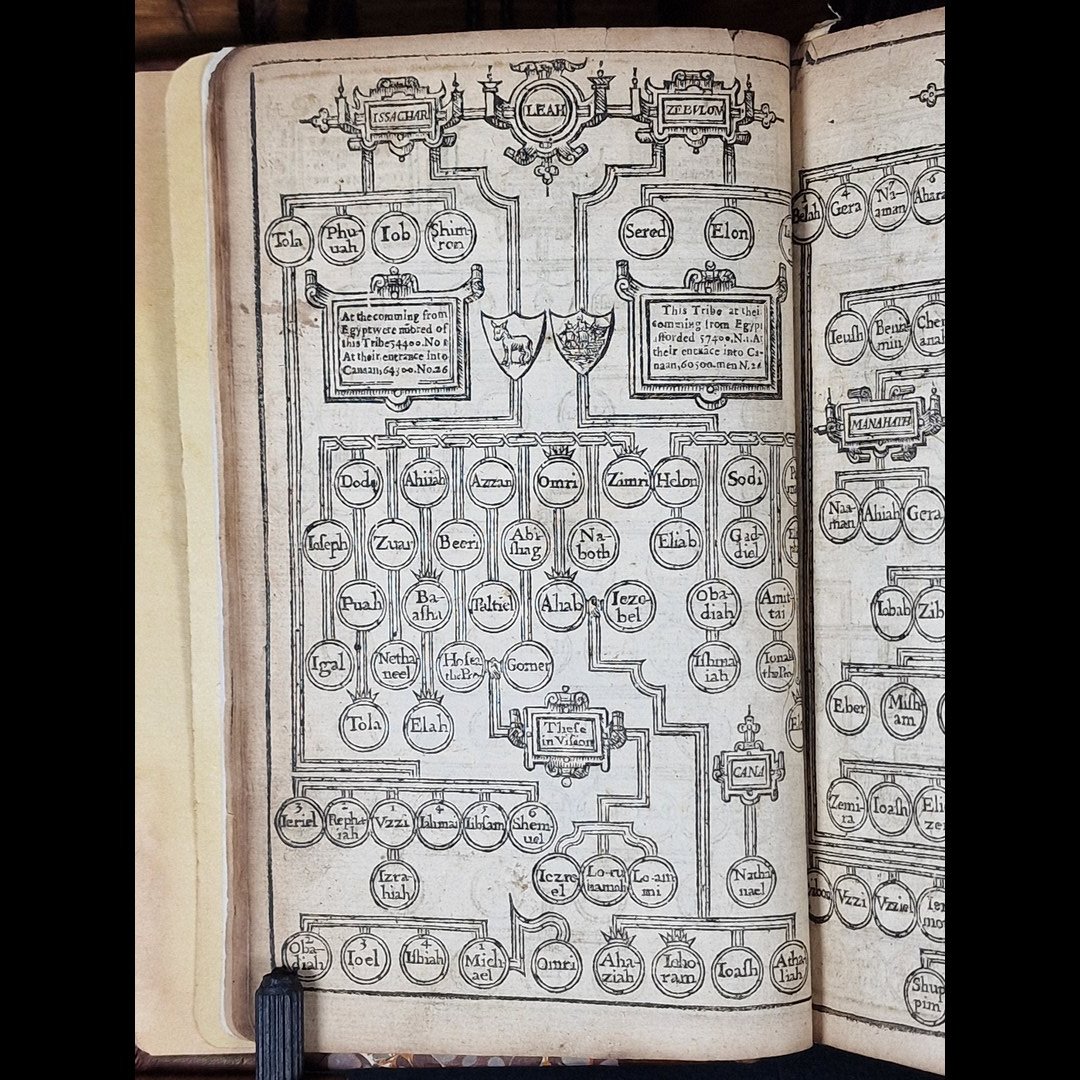 ISSACHAR
LEAH
ZEBVLON
Tola
Phu-
uah
Iob
Shim-
ron
Sered
Elon
At the comming from
Egypt were nūbred of
this Tribe 54400. No
At their entrance into
Canaan, 64300. No. 26
This Tribe at thei
comming from Egypt
afforded 57400, N.1. At
their entrāce into Ca-
naan, 60500. men N. 26
Dodo
Ahiiah
Azzan
Omri
Zimri
Helon
Sodi
Ioseph
Zuar
Beeri
Abi-
shag
Na-
both
Eliab
Gad-
diel
Puah
Ba-
asha
Paltiel
Ahab
Ieze-
bel
Oba-
diah
Amit-
tai
Igal
Netha-
neel
Hosea
the Pro
Gomer
Ishma-
iah
Iona
the Pro
Tola
Elah
These
in Vision
CANA
3
Ieriel
2
Repha-
iah
1
Vzzi
4
Iahmai
5
Iibsam
6
Shem-
uel
Izra-
hiah
Iezre-
el
Lo-ru-
hamah
Lo-am-
mi
Natha-
nael
2
Oba-
diah
3
Ioel
4
Ishiah
1
Mich-
ael
Omri
Aha-
ziah
Ieho-
ram
Ioash
Atha-
liah
Belah
4
Gera
7
Na-
aman
6
Ahara
Ieush
Benia-
min
Che-
anah
MANAHATH
Naa-
man
Ahiah
Gera
Iobab
Zib
Eber
Mish-
am
Zemi-
ra
Ioash
Eli
ze
Vzzi
Vzziel
Ier
mo
Shup
pim